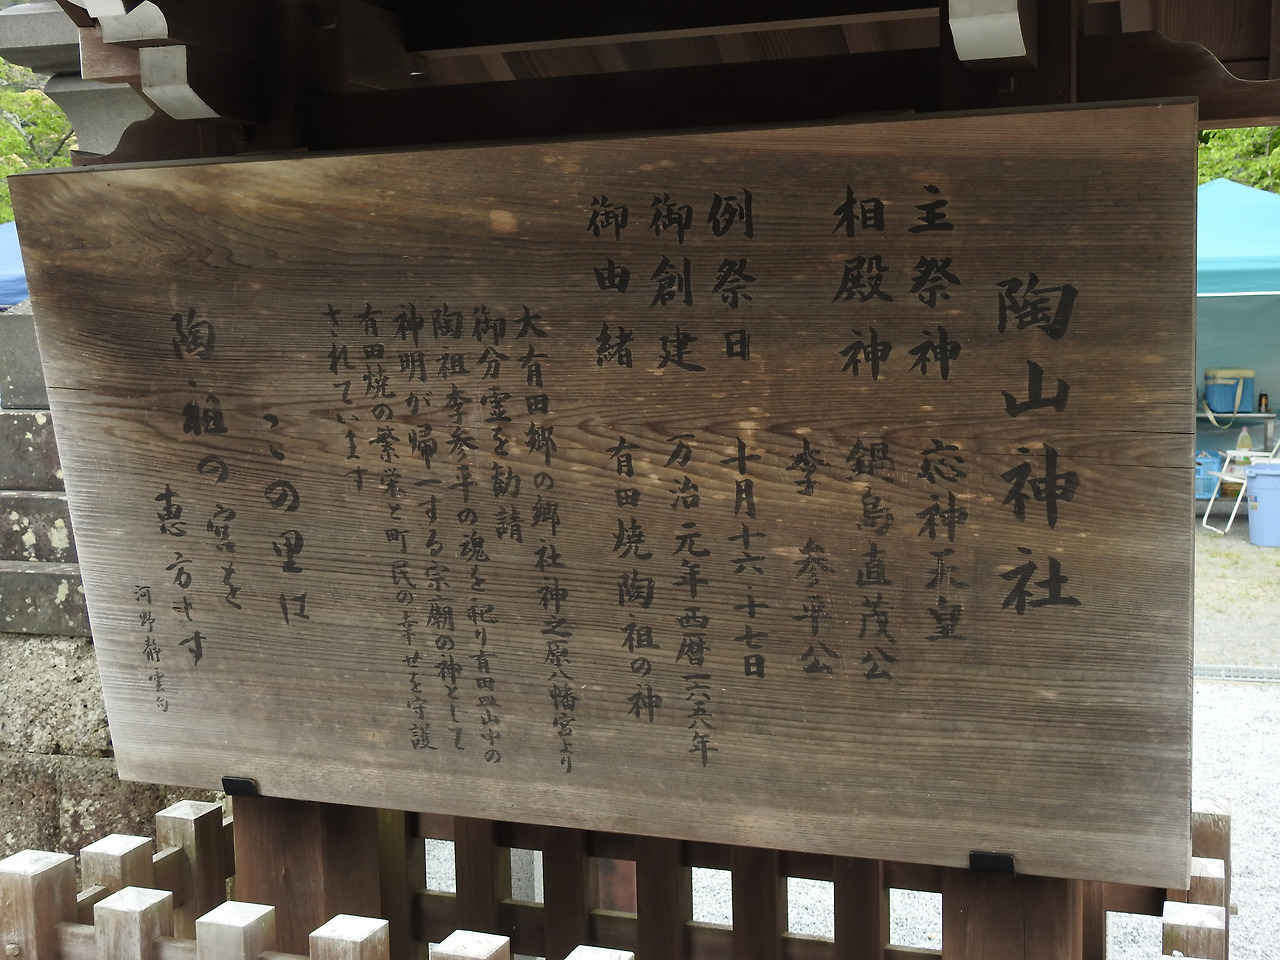 陶山神社
主祭神 応神天皇
相殿神 鍋島直茂公
李参平公
例祭日 十月十六、十七日
御創建 万治元年西暦一六五八年
御由緒 有田焼陶祖の神
大有田郷の郷社神之原八幡宮より
御分霊を勧請
陶祖李参平の魂を祀り有田皿山中の
神明が帰一する宗廟の神として
有田焼の繁栄と町民の幸せを守護
されています
この里は
陶祖の宮を
恵方とす
河野静雲句